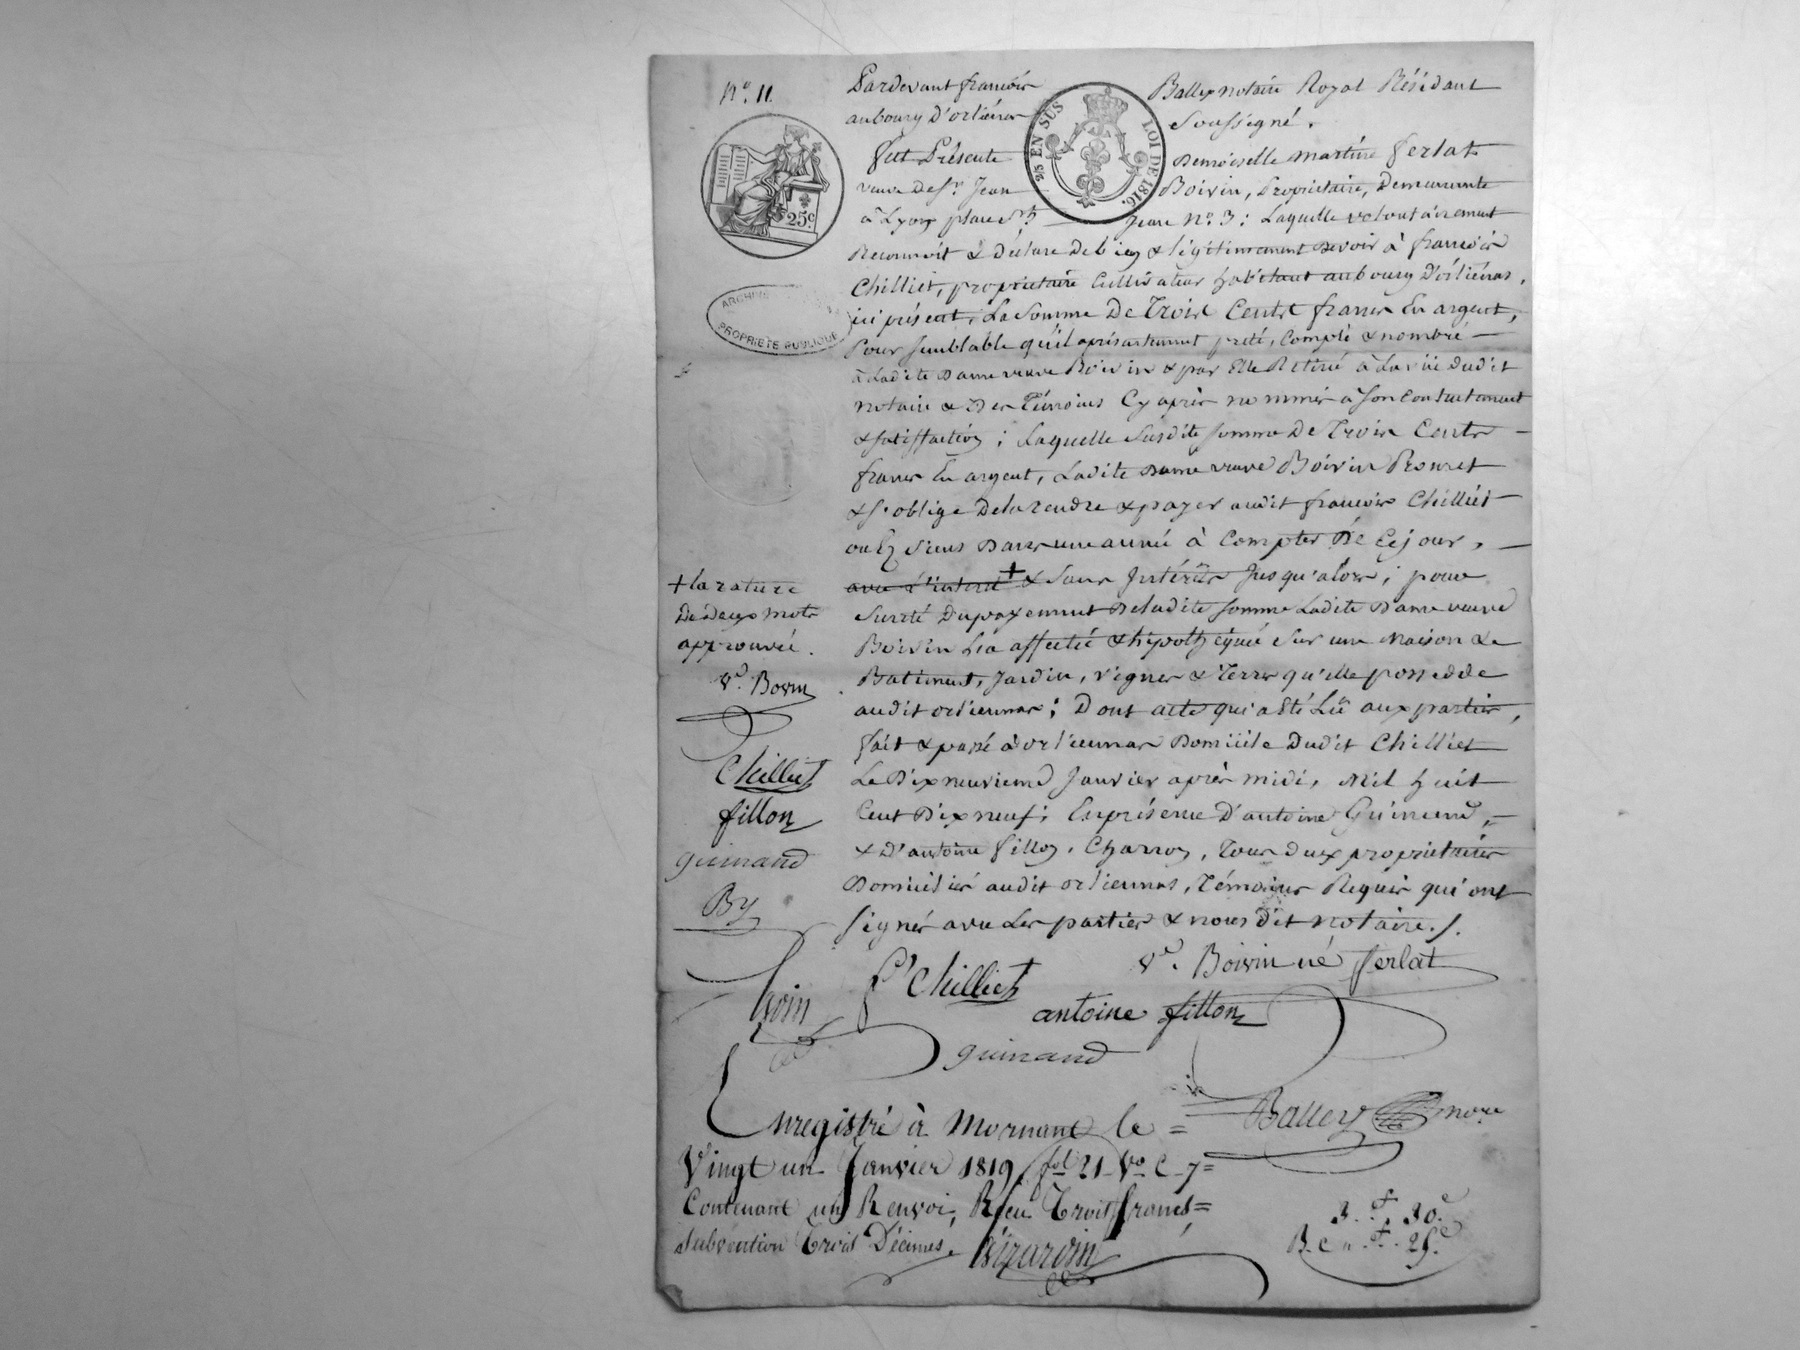 N.º 11.
Pardevant françois Balley notaire Royal Résidant
aubourg d'orliénas Soussigné.
fut Présente Demoiselle martine ferlat
veuve De Sr. Jean Boivin, Propriétaire, Demeurante
à Lyon place St. Jean N.º 3: Laquelle volontairement
Reconnoit & Déclare De bien & légitimement Devoir à françois
Chilliet, propriétaire Cultivateur habitant aubourg D'orliénas,
ici présent, La Somme De Trois Cents francs En argent,
Pour semblable qu'il a présentement preté, Compté & nombré
à Ladite Dame veuve Boivin & par Elle Retiré à La vüe dudit
notaire & Des Témoins Cy après nommés à son Contentement
& satisfaction; Laquelle susdite somme De Trois Cents
francs En argent, Ladite Dame veuve Boivin Promet
& s'oblige De la rendre & payer audit françois Chilliet
ou Ez siens Dans une année à Compter De Cejour,
avec L'interet + & Sans Intérêts Jusqu'alors; pour
sureté Dupayement De ladite somme Ladite Dame veuve
Boivin L'a affecté & hipothéqué sur une Maison &
Batiment, Jardin, Vignes & Terres qu'elle possedde
audit orliennas; Dont acte qui a Eté Lü aux parties,
fait & passé à orliennas Domicile Dudit Chilliet
Le Dixneuvieme Janvier après midi, Mil huit
Cent Dixneuf; En présence D'antoine Guinand,
& D'antoine fillon, Charron, Tous deux propriétaires
Domiciliés audit orliennas, Témoins Requis qui ont
signés avec Les parties & nous dit Notaire./.
+ la rature
De deux mots
approuvée.
Ve. Boivin
Chilliet
fillon
guinand
By
ARCHIVE
PROPRIÉTÉ PUBLIQUE
25 EN SUS
LOI DE 1816.
25c
Ve. Boivin né ferlat
f Chilliet
antoine fillon
guinand
Balley nore
Enregistré à Mornant le =
Vingt un Janvier 1819, fol 21 Vo C 7=
Contenant un Renvoi, Reçu Trois francs=
Subvention Trois Décimes.
Girardin
3.f 30.c
25.c